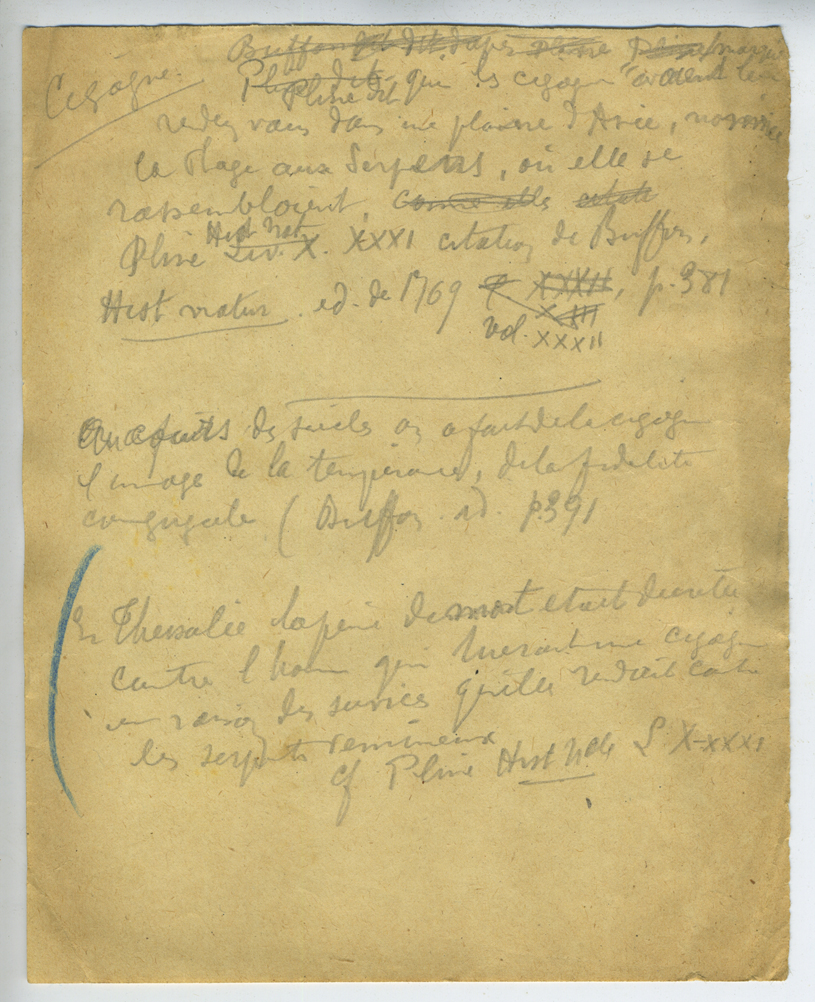 Cigogne.
Buffon dit d'après Pline Pline
Pline dit que les cigognes avaient leur
Pline dit
rendez vous dans une plaine d'Asie, nommée
la Plage aux Serpens, où elle se
rassembloient, Comme elle
Hist Nat
Pline Liv. X. XXXI citation de Buffon,
Hist natur. ed. de 1769 XXXII, p. 381
XIII
Vol. XXXII
des siècles on a fait de la cigogne
l'image de la tempérance, de la fidelité
conjugale ( Buffon id. p. 391
En Thessalie la peine de mort etait decretée
contre l'homme qui tuerait une cigogne
en raison des services qu'elle rendait contre
les serpents venimeux
cf Pline Hist Nlle L X-XXXI